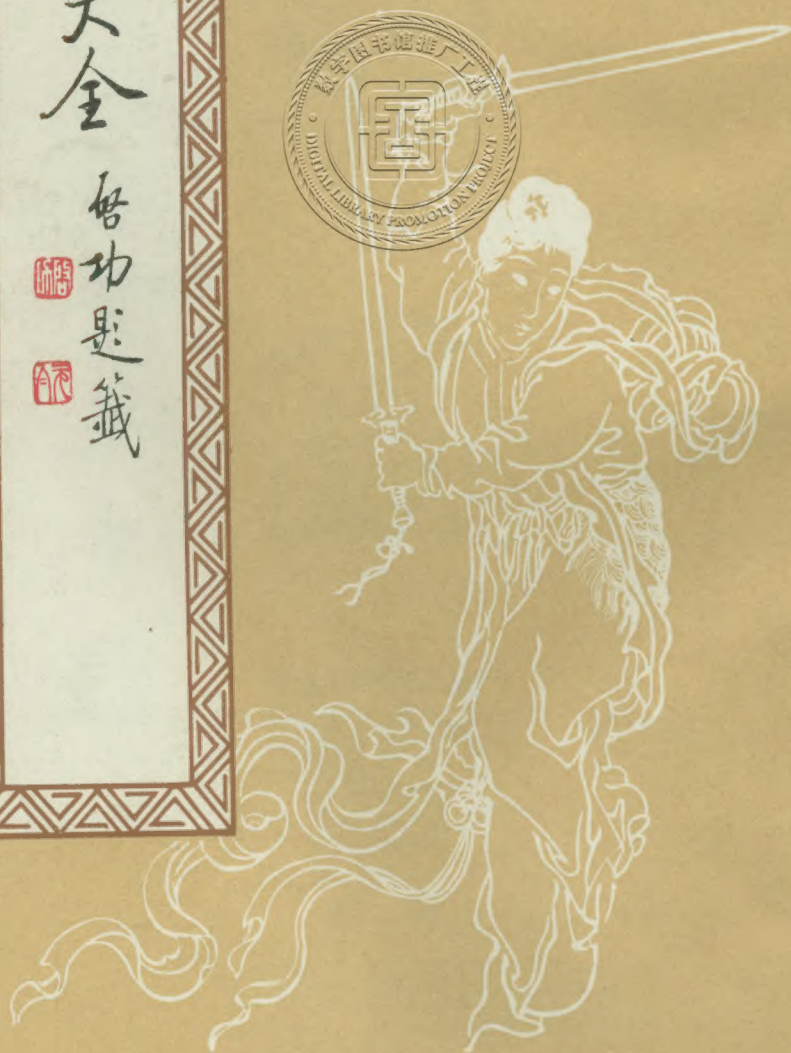 大全
啓功題籤
啓功
元白
数字图书馆推广工程
DIGITAL LIBRARY PROMOTION PROJECT